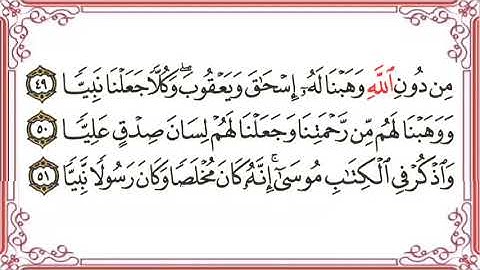 مِن دُونِ ٱللَّهِ وَهَبْنَا لَهُۥٓ إِسْحَٰقَ وَيَعْقُوبَۖ وَكُلًّا جَعَلْنَا نَبِيًّا ٤٩
وَوَهَبْنَا لَهُم مِّن رَّحْمَتِنَا وَجَعَلْنَا لَهُمْ لِسَانَ صِدْقٍ عَلِيًّا ٥٠
وَٱذْكُرْ فِى ٱلْكِتَٰبِ مُوسَىٰٓۚ إِنَّهُۥ كَانَ مُخْلَصًا وَكَانَ رَسُولًا نَّبِيًّا ٥١